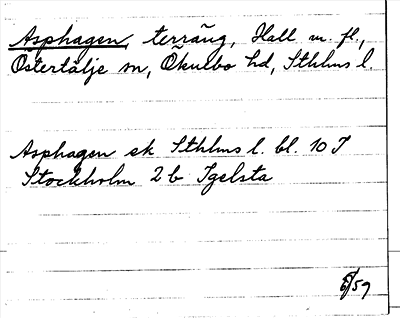 Asphagen, terräng, Hall m. fl.,
Östertälje sn, Öknebo hd, Sthlms l.
Asphagen ek Sthlms l. bl. 10 I
Stockholm 2 b Igelsta
6/59